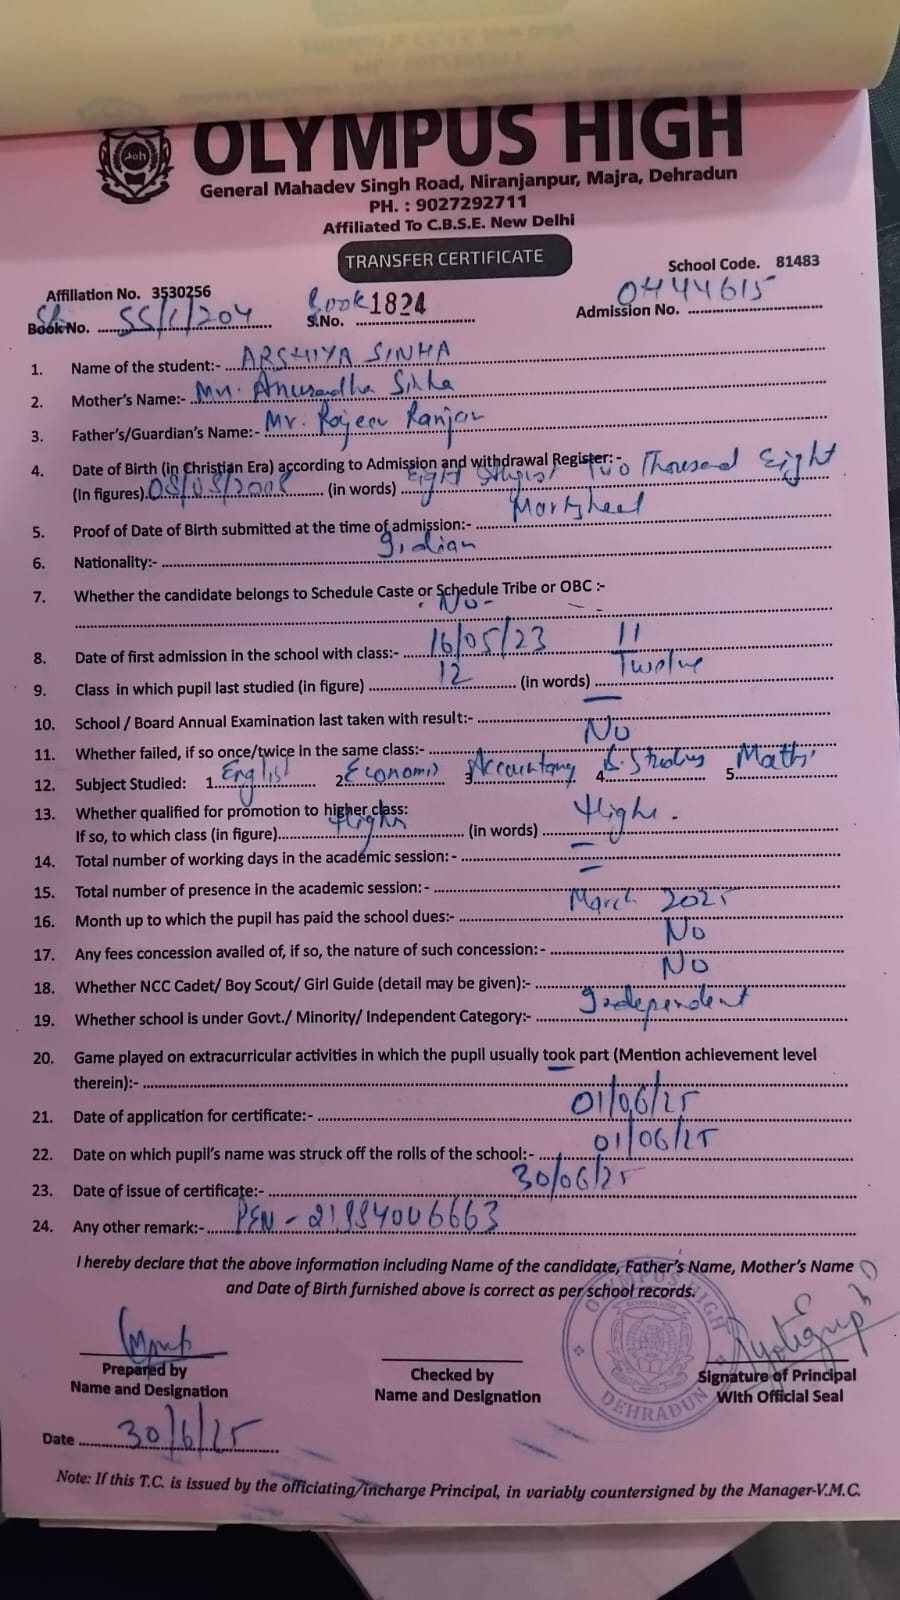 OLYMPUS HIGH
General Mahadev Singh Road, Niranjanpur, Majra, Dehradun
PH. : 9027292711
Affiliated To C.B.S.E. New Delhi
TRANSFER CERTIFICATE
School Code. 81483
Affiliation No. 3530256
Book No. SS/1/204 Book S.No. 1824 Admission No. 0444615
1. Name of the student:- ARSHIYA SINHA
2. Mother's Name:- Mrs. Anuradha Sinha
3. Father's/Guardian's Name:- Mr. Rajeev Ranjan
4. Date of Birth (in Christian Era) according to Admission and withdrawal Register:-
(In figures) 08/08/2008 (in words) Eight August Two Thousand Eight
5. Proof of Date of Birth submitted at the time of admission:- Marksheet
6. Nationality:- Indian
7. Whether the candidate belongs to Schedule Caste or Schedule Tribe or OBC :-
- No -
8. Date of first admission in the school with class:- 16/05/23 11
9. Class in which pupil last studied (in figure) 12 (in words) Twelve
10. School / Board Annual Examination last taken with result:- —
11. Whether failed, if so once/twice in the same class:- No
12. Subject Studied: 1. English 2. Economics 3. Accountancy 4. B. Studies 5. Maths
13. Whether qualified for promotion to higher class:
If so, to which class (in figure) Higher (in words) Higher.
14. Total number of working days in the academic session:- —
15. Total number of presence in the academic session:- —
16. Month up to which the pupil has paid the school dues:- March 2025
17. Any fees concession availed of, if so, the nature of such concession:- No
18. Whether NCC Cadet/ Boy Scout/ Girl Guide (detail may be given):- No
19. Whether school is under Govt./ Minority/ Independent Category:- Independent
20. Game played on extracurricular activities in which the pupil usually took part (Mention achievement level
therein):- —
21. Date of application for certificate:- 01/06/25
22. Date on which pupil's name was struck off the rolls of the school:- 01/06/25
23. Date of issue of certificate:- 30/06/25
24. Any other remark:- PEN - 21984006663
I hereby declare that the above information including Name of the candidate, Father's Name, Mother's Name
and Date of Birth furnished above is correct as per school records.
OLYMPUS HIGH DEHRADUN
Prepared by
Name and Designation
Checked by
Name and Designation
Signature of Principal
With Official Seal
Date 30/6/25
Note: If this T.C. is issued by the officiating/incharge Principal, in variably countersigned by the Manager-V.M.C.